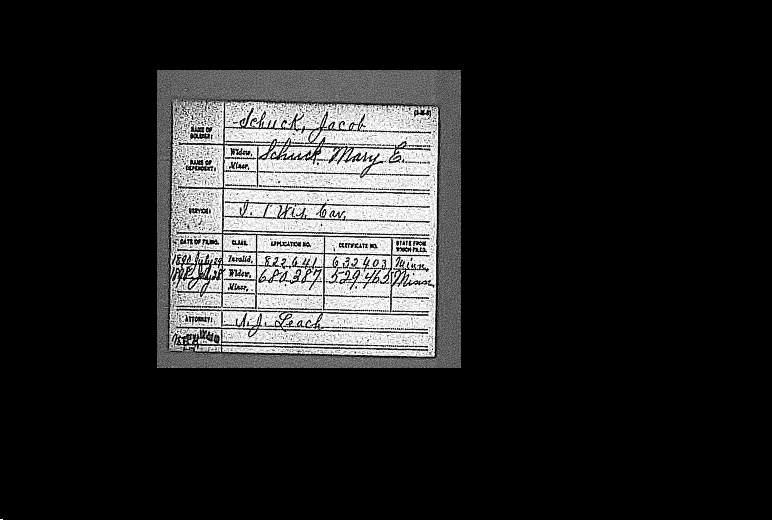 (3-H-8)
NAME OF SOLDIER: Schuck, Jacob
NAME OF DEPENDENT: Widow, Schuck Mary E.
Minor,
SERVICE: I. 1 Wis. Cav.
DATE OF FILING. CLASS. APPLICATION NO. CERTIFICATE NO. STATE FROM WHICH FILED.
1890 July Invalid, 822.641 632403 Minn.
1898 Widow, 680.387 529.465 Minn
Minor,
ATTORNEY: A. J. Leach